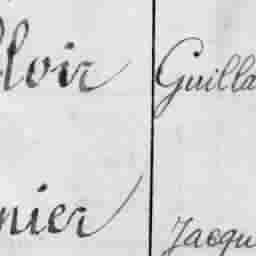 loir Guilla
nier Jacqu